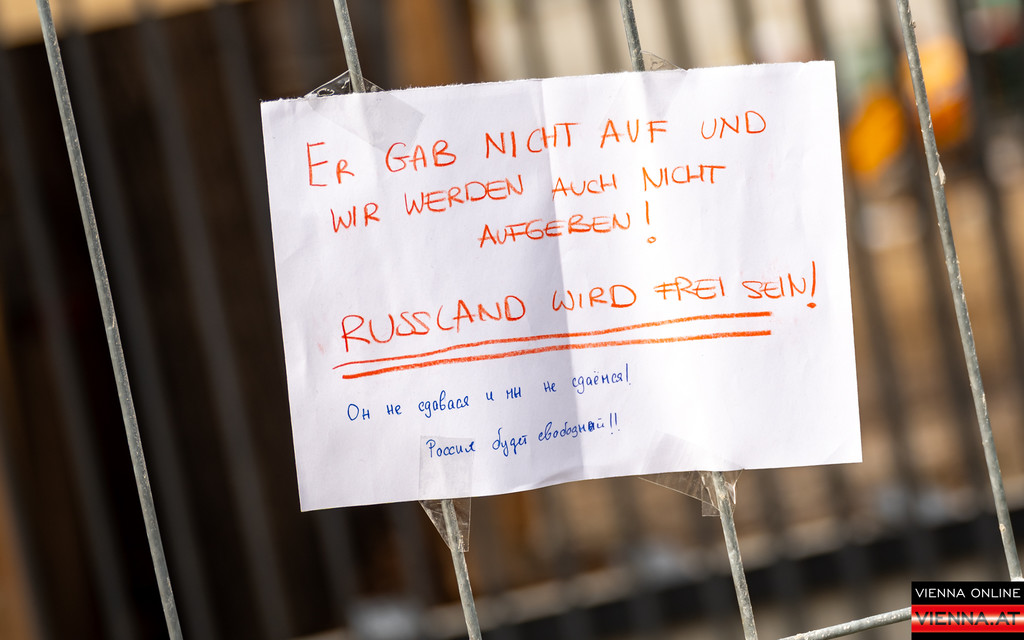 ER GAB NICHT AUF UND
WIR WERDEN AUCH NICHT
AUFGEBEN!
RUSSLAND WIRD FREI SEIN!
Он не сдавася и мы не сдаёмся!
Россия будет свободный!!
VIENNA ONLINE
VIENNA.AT